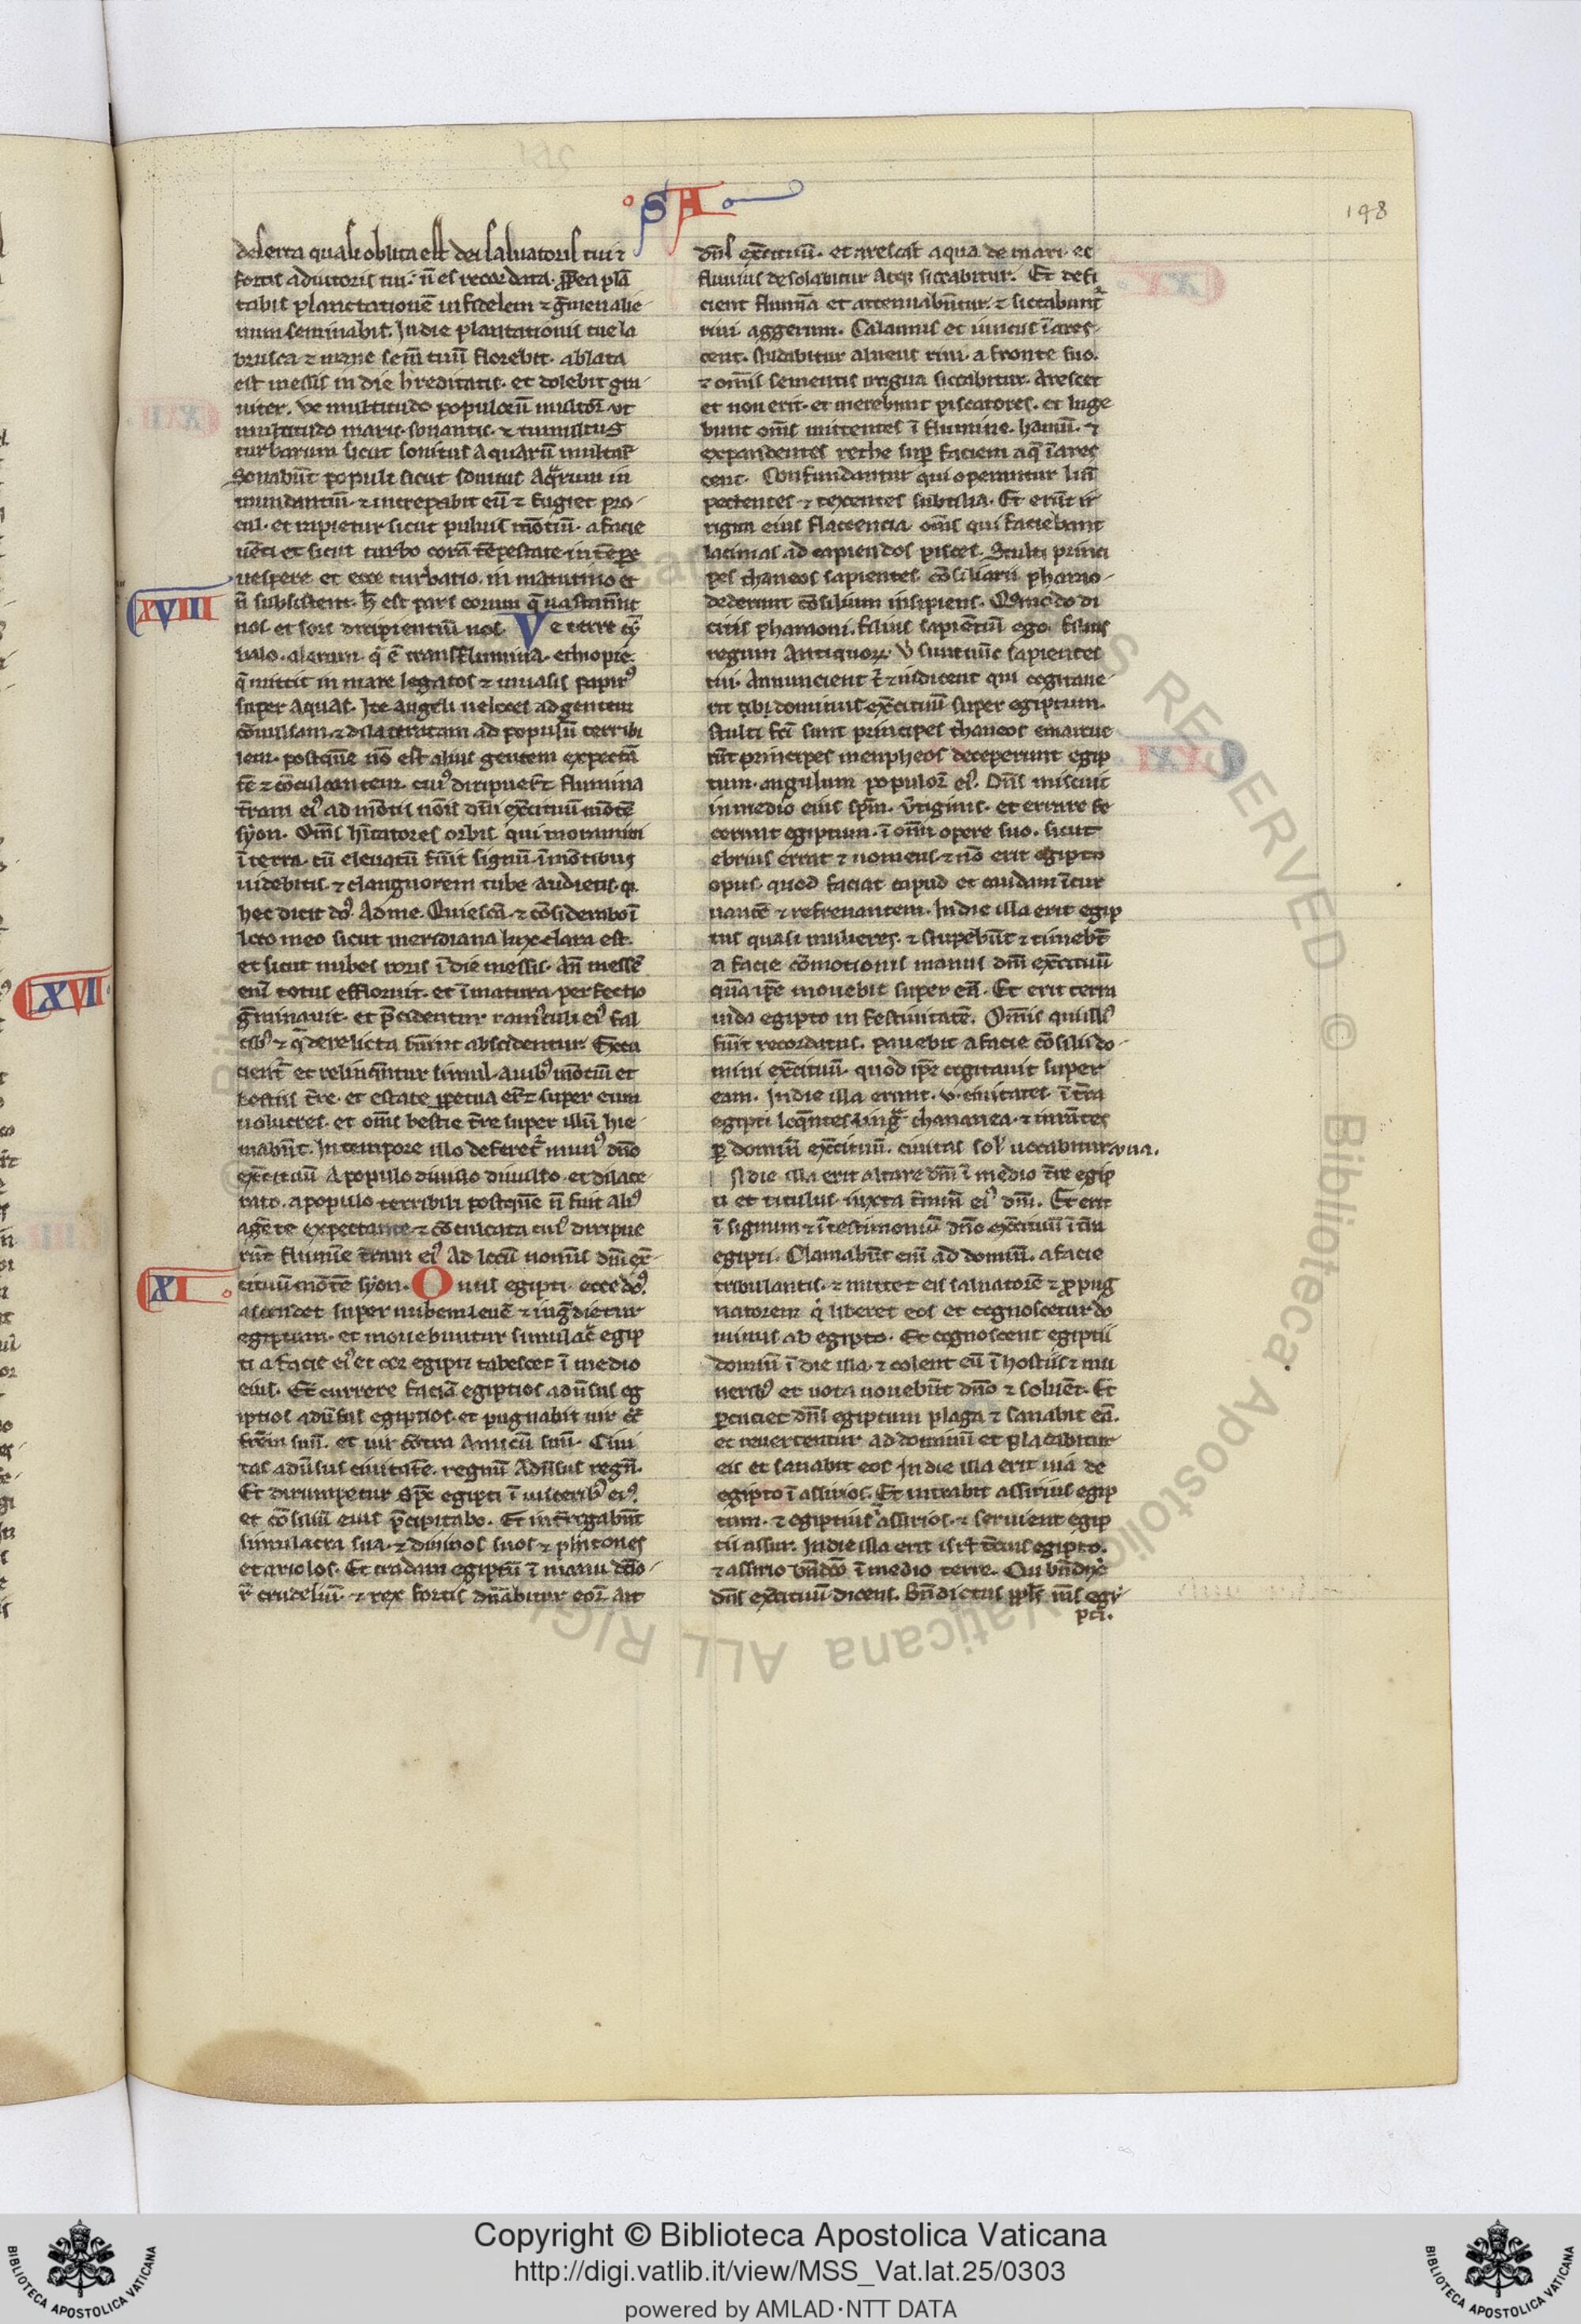 SA
198
deserta quasi oblita est dei saluatoris tui ⁊
fortis adiutoris tui. n̄ es recordata. ꝓp̄ea plā
tabis planctationē infidelem ⁊ ḡmen alie
num seminabit. In die plantationis tue la
brusca ⁊ mane sem̄ tuū florebit. ablata
est messis in die h̄reditatis. et dolebit gra
uiter. Ve multitudo populoꝝ multoꝝ ut
multitudo maris sonantis. ⁊ tumultus
turbarum sicut sonitus aquarū multaꝝ
Sonabūt populi sicut sonitus aq̄rum in
inundantiū. ⁊ increpabit eū ⁊ fugiet pro
cul. et rapietur sicut puluis mōtiū. a facie
uēti et sicut turbo corā tēpestate. in tēpe
uespere et ecce turbatio. in matutino et
n̄ subsistent. h̄ est pars eorum q̄ uastauer̄t
XVIII
nos et sors diripientiū nos. Ve terre cy
balo. alarum. q̄ ē trans flumina. ethiopie.
q̄ mittit in mare legatos ⁊ in uasis papirꝰ
super aquas. Ite angeli ueloces ad gentem
cōuulsam. ⁊ dilaceratam ad populū terribi
lem. postquē nō est alius gentem expectā
tē ⁊ cōculcantem. cuiꝰ diripuer̄t flumina
t̄ram eiꝰ ad mōtē nōis dn̄i exc̄ituū mōtē
syon. Om̄s h̄itatores orbis qui moramini
ī terra. cū eleuatū fūit signū. ī mōtibus
uidebitis. ⁊ clangorem tube audietis. q.
hec dicit dō. ad me. Quiescā. ⁊ cōsiderabo ī
loco meo sicut meridiana lux clara est.
et sicut nubes roris ī die messis. An̄ messē
enī totus effloruit. et īmatura perfectio
XVII
ḡminauit. et p̄cidentur ramusculi eiꝰ fal
cibꝰ ⁊ q̄ derelicta fūint abscidentur. Excu
cient̄ et relinquntur simul. auibꝰ mōtiū et
bestiis t̄re. et estate ꝑpetua er̄t super eum
uolucres. et om̄s bestie t̄re super illū hie
mabūt. In tempore illo deferet̄ munꝰ dn̄o
exc̄ituū a populo diuulso diuulso. et dilace
rato. a populo terribili postquē n̄ fuit alius
a gēte expectante. ⁊ cōculcata cuiꝰ diripue
rūt flumīe t̄ram eiꝰ ad locū nominis dn̄i exc̄
XI
cituū mōtē syon. Onus egipti. ecce dō.
ascendet super nubem leuē ⁊ ingdietur
egiptum. et mouebuntur simulac̄ egip
ti a facie eiꝰ et cor egipti tabescet ī medio
eius. Et currere faciā egiptios aduersus eg
iptios aduersus egiptios. et pugnabit uir
fr̄em suū. et uir contra amicū suū. Ciui
tas adūsus ciuitatē. regnū adūsus regn̄.
Et dirumpetur sp̄c egipti ī uisceribꝰ eiꝰ.
et cōsiliū eius p̄cipitabo. Et int̄rogabūt
simulacra sua. ⁊ diuinos suos ⁊ phitones
et ariolos. Et tradam egiptū ī manu dn̄o
ꝝ crudeliū. ⁊ rex fortis dn̄abitur eoꝝ ait
dn̄s exc̄ituū. et arescat aqua de mari. et
fluuius desolabitur atqꝫ siccabitur. Et defi
cient flumīa et attenuabūtur. ⁊ siccabunt̄
riui aggerum. Calamus et iuncus īares
cent. nudabitur alueus riui. a fronte suo.
⁊ om̄is sementis irrigua siccabitur. Arescet
et non erit. et merebunt piscatores. et luge
bunt om̄s mittentes ī flumine. hamū. ⁊
expandentes rethe sup̄ faciem aq̄ īares
cent. Confundantur qui operantur linū
pectentes ⁊ texentes subtilia. Et erūt ir
rigua eius flaccencia. om̄s qui faciebant
lacunas ad capiendos pisces. Stulti princi
pes thaneos sapientes. cōsiliarii pharao
dederunt cōsilium insipiens. Quomodo di
citis pharaoni. filius sapientū ego. filius
regum antiquoꝝ. Vbi sunt nūc sapientes
tui. Annuncient t̄ ⁊ indicent qui cogitaue
rit tibi dominus exc̄ituū super egiptum.
Stulti fc̄i sunt principes thaneos emarcue
rūt principes menpheos deceperunt egip
tum. angulum populoꝝ eiꝰ. Dn̄s miscuit
in medio eius sp̄m. v̄tiginis. et errare fe
cerunt egiptum. ī om̄i opere suo. sicut
ebrius errat ⁊ uomens. ⁊ nō erit egipto
opus. quod faciat capud et caudam īcur
uantē ⁊ refrenantem. In die illa erit egip
tus quasi mulieres. ⁊ stupebūt ⁊ timebt̄
a facie cōmotionis manus dn̄i exc̄ituū
quā ip̄e mouebit super eā. Et erit terra
iuda egipto in festiuitatē. Omnis qui illiꝰ
fūit recordatus. pauebit a facie cōsilii do
mini exc̄ituū. quod ip̄e cogitauit super
eam. In die illa erunt. v. ciuitates. ī t̄ra
egipti loquntes lingᷓ chananea. ⁊ iurātes
ꝑ dominū exc̄ituū. ciuitas sol̄ uocabitur una.
In die illa erit altare dn̄i ī medio t̄re egip
ti et titulus iuxta t̄minū eiꝰ dn̄i. Et erit
ī signum ⁊ ī testimoniū dn̄o exc̄ituū ī t̄ra
egipti. Clamabūt eni ad dominū. a facie
tribulantis. ⁊ mittet eis saluatorē ⁊ ꝓpug
natorem q̄ liberet eos et cognoscetur do
minus ab egipto. Et cognoscent egiptii
dominū ī die illa. ⁊ colent eū ī hostiis ⁊ mu
neribꝰ et uota uouebūt dn̄o ⁊ soluēt. Et
ꝑcuciet dn̄s egiptum plaga ⁊ sanabit eā.
et reuertentur ad dominū et placabitur
eis et sanabit eos In die illa erit uia de
egipto ī assirios. Et intrabit assirius egip
tum. ⁊ egiptius assirios. ⁊ seruient egip
tii assur. In die illa erit isrl̄ t̄cius egipto.
⁊ assirio bn̄dc̄o ī medio terre. Cui bn̄dix̄
dn̄s exc̄ituū dicens. Bn̄dictus ppl̄s m̄s egi
pti.
Copyright © Biblioteca Apostolica Vaticana
http://digi.vatlib.it/view/MSS_Vat.lat.25/0303
powered by AMLAD·NTT DATA
BIBLIOTECA APOSTOLICA VATICANA
BIBLIOTECA APOSTOLICA VATICANA